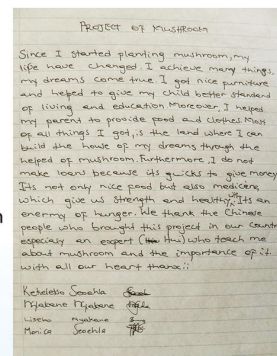 PROJECT OF MUSHROOM
Since I started planting mushroom, my
life have changed. I achieve many things,
my dreams come true. I got nice furniture
and helped to give my child better standard
of living and education Moreover, I helped
my parent to provide food and clothes. Most
of all things I got, is the land where I can
build the house of my dreams through the
helped of mushroom. Furthermore, I do not
make loans because its quicks to give money
Its not only nice food but also medicene,
which give us strength and healthy. Its an
enermy of hunger. We thank the Chinese
people who brought this project in our Countr
especialy an expert Hui) who teach me
about mushroom and the importance of it.
with all our heart thanx!!
Keheleko Seochla
Ngakane
Liseho Ngakane
Monica Seochla